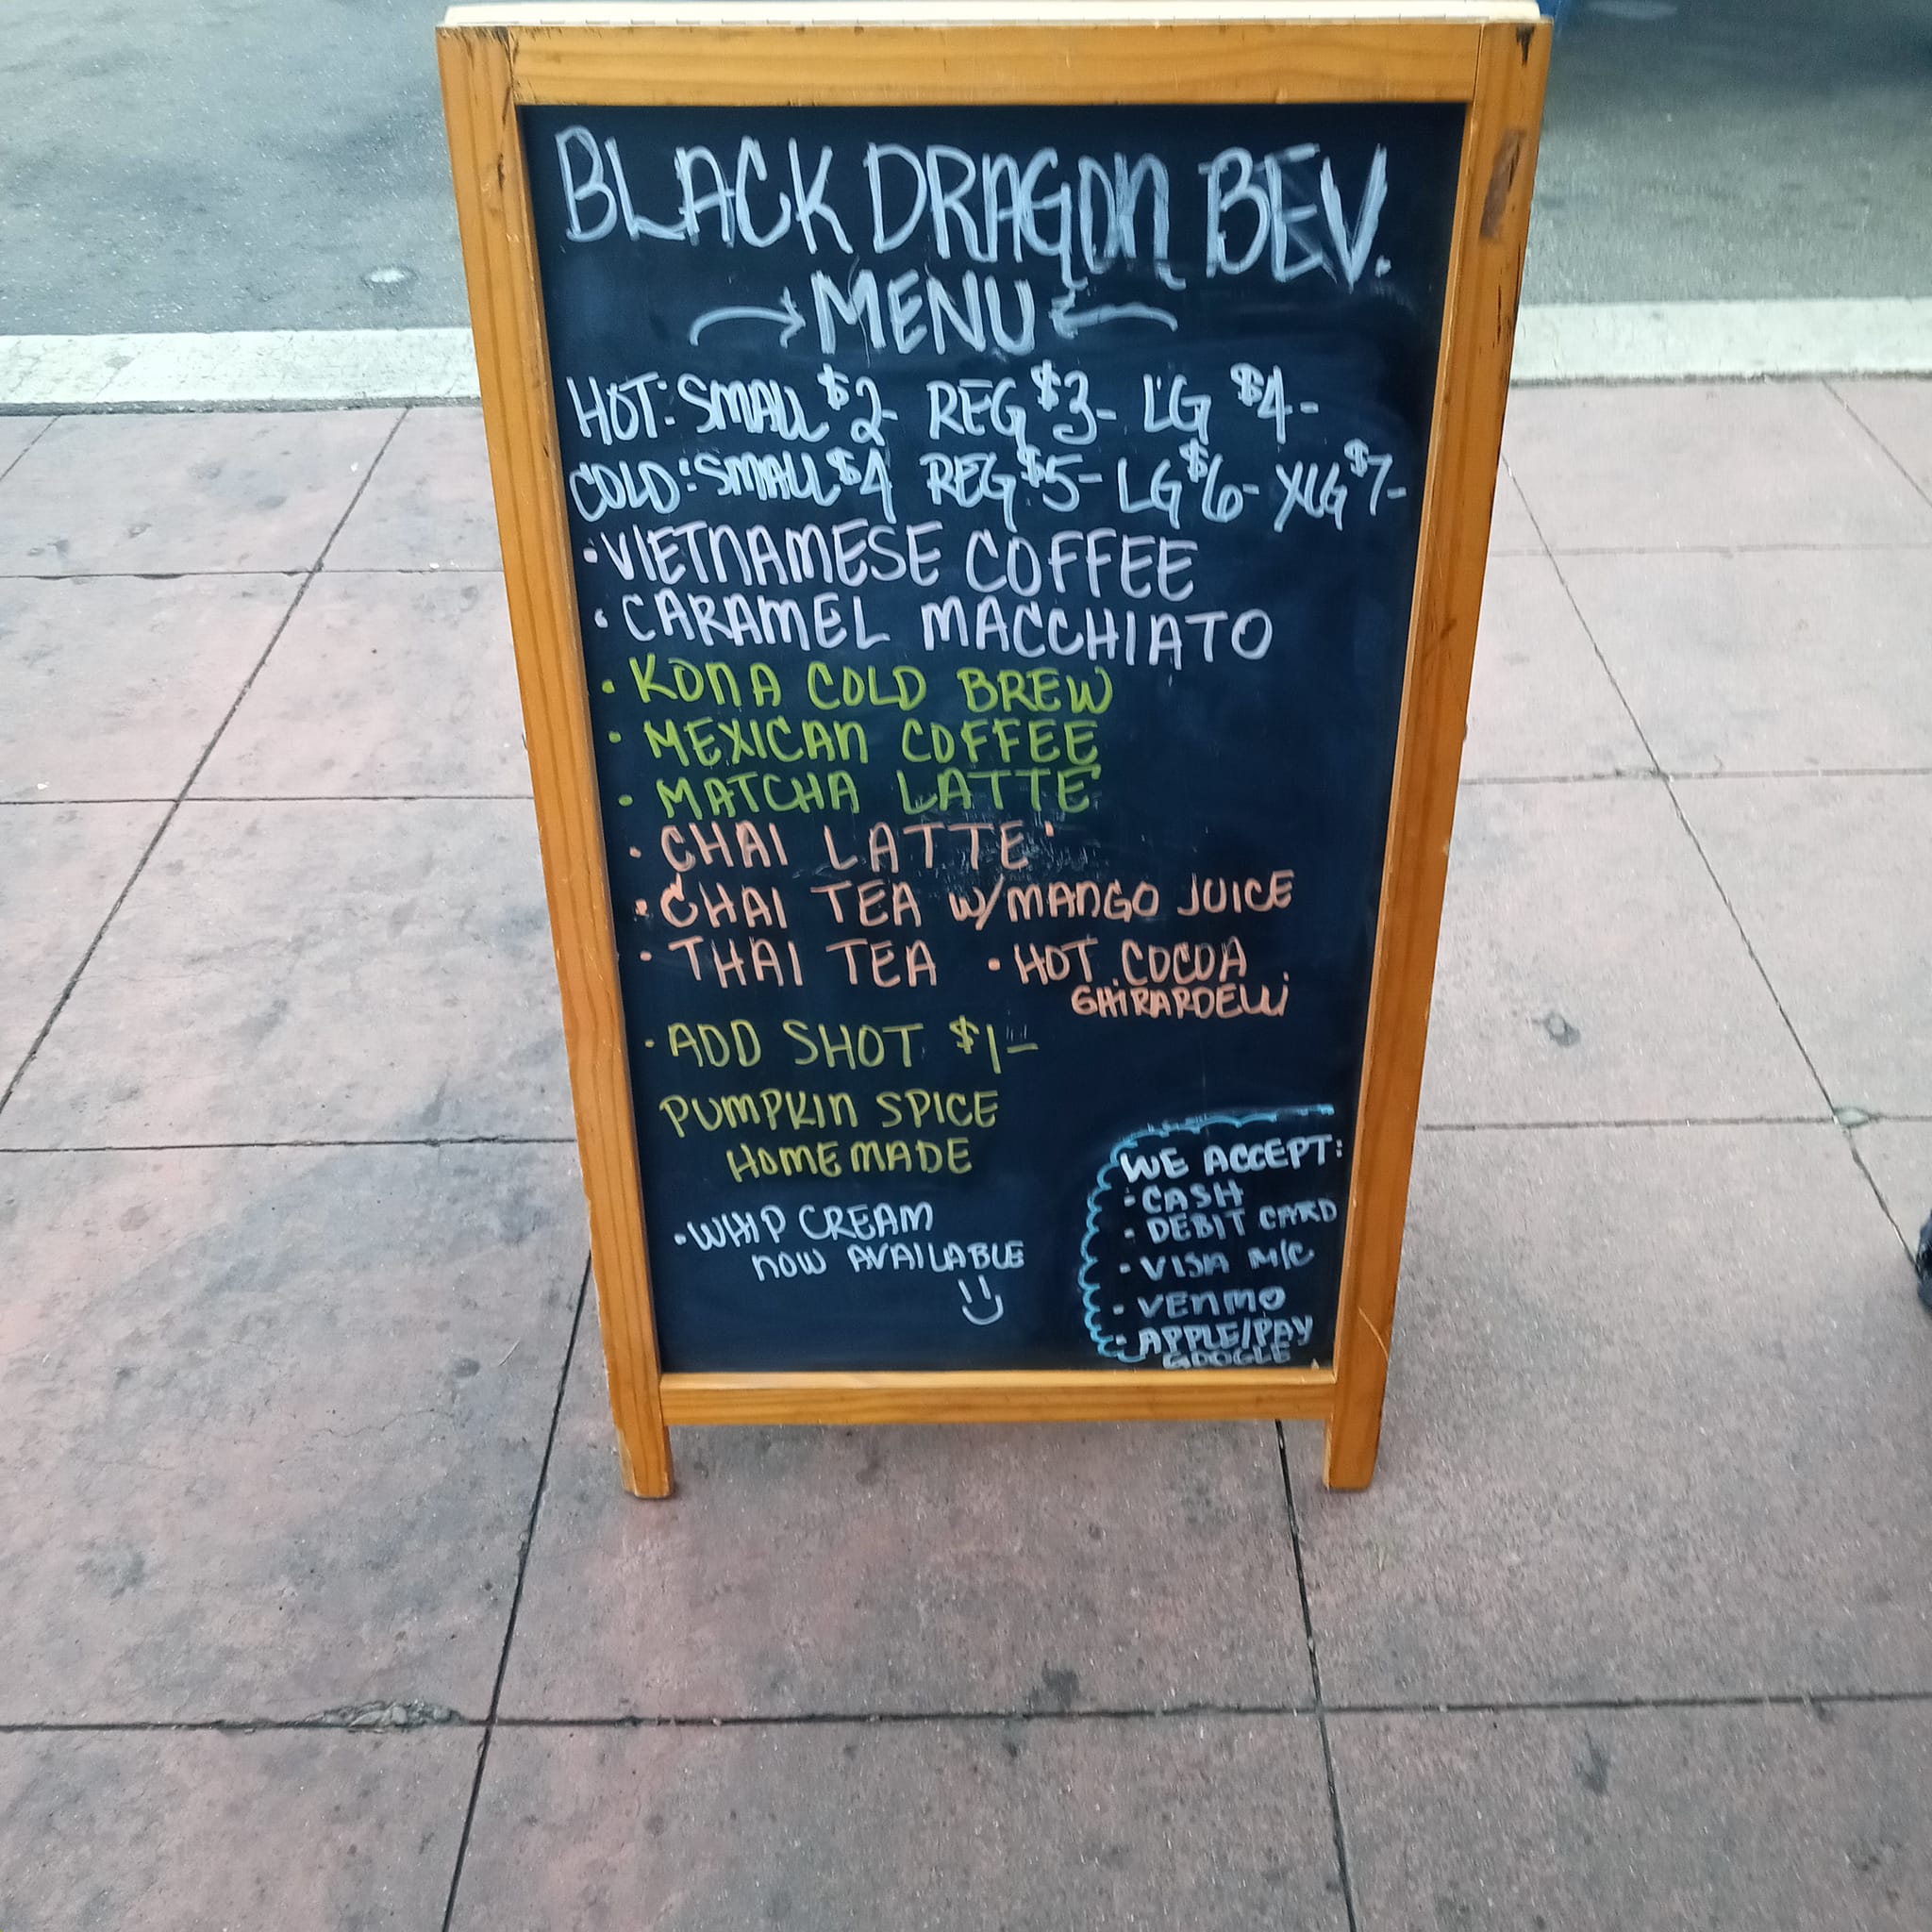 BLACK DRAGON BEV.
MENU
HOT: SMALL $2- REG $3- LG $4-
COLD: SMALL $4 REG $5- LG $6- XLG $7-
• VIETNAMESE COFFEE
• CARAMEL MACCHIATO
• KONA COLD BREW
• MEXICAN COFFEE
• MATCHA LATTE'
• CHAI LATTE'
• CHAI TEA W/MANGO JUICE
• THAI TEA • HOT COCOA
GHIRARDELLI
• ADD SHOT $1-
PUMPKIN SPICE
HOMEMADE
• WHIP CREAM
NOW AVAILABLE
WE ACCEPT:
• CASH
• DEBIT CARD
• VISA M/C
• VENMO
• APPLE/PAY
GOOGLE